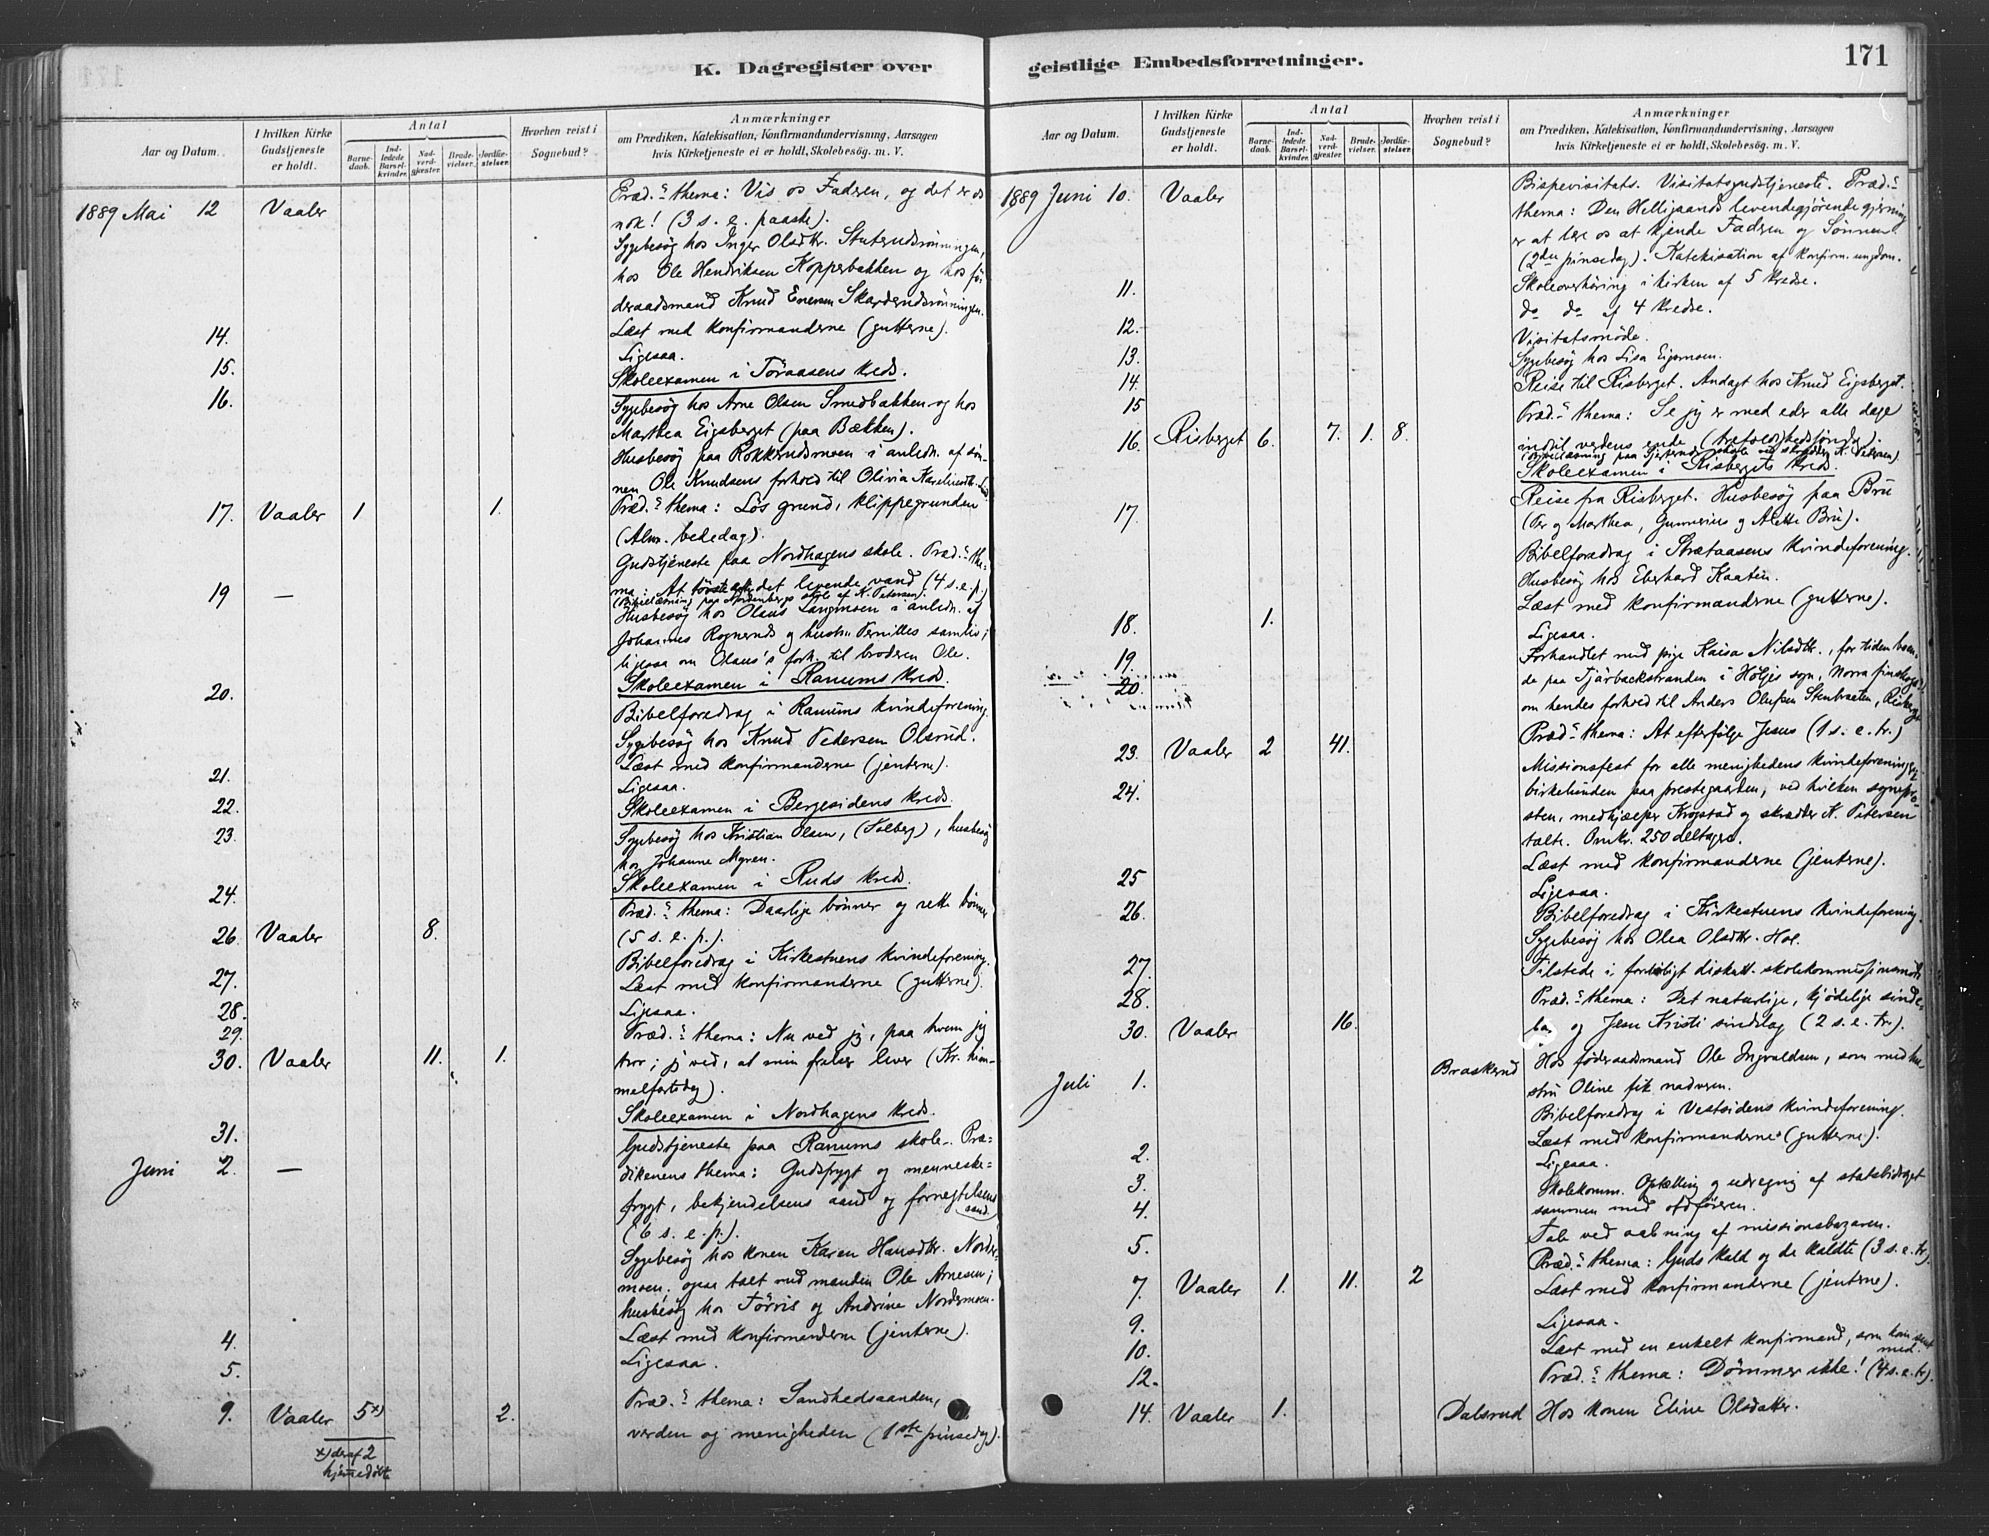 K. Dagregister over
Aar og Datum.
I hvilken Kirke Gudstjeneste er holdt.
Antal
Barnedaab.
Indledede Barselkvinder.
Nadverdgjester.
Brudevielser.
Jordfæstelser.
Hvorhen reist i Sognebud?
Anmærkninger
om Prædiken, Katekisation, Konfirmandundervisning, Aarsagen
hvis Kirketjeneste ei er holdt, Skolebesøg. m. V.
1889 Mai 12 Vaaler Præd.s thema: Vis os Faderen, og det er os
nok! (3 s. e. paaske).
Sygebesøg hos Inger Olsdtr.
hos Ole Hendriksen Kopperbakken og hos fø-
deraadsmand Knud Enersen Skarderudsrønningen.
14. Læst med konfirmanderne (gutterne).
15. Ligesaa.
16. Skoleexamen i Føraasens kreds.
Sygebesøg hos Arne Olsen Smedbakken og hos
Marthea Eigsberget (paa Bækken).
Husbesøg paa Rokkerudsmoen i anledn. af søn-
nen Ole Knudsens forhold til Olivia
17. Vaaler 1 1. Præd.s thema: Løs grund, klippegrunden
(Alm. bededag).
19 — Gudstjeneste paa Nordhagens skole. Præd.s the-
ma: At tørste efter det levende vand (4 s. e. p.)
(Bibellæsning paa Nordenbergs skole af K. Petersen).
Husbesøg hos Olaus Langmoen i anledn. af
Johannes Rognerud og hustru Pernilles samliv;
ligesaa om Olaus's forh. til broderen Ole.
20. Skoleexamen i Ranums kreds.
Bibelforedrag i Ranums kvindeforening.
Sygebesøg hos Knud Pedersen Olsrud.
21. Læst med konfirmanderne (jenterne).
22. Ligesaa.
23. Skoleexamen i Bergesidens kreds.
Sygebesøg hos Kristian Olsen, (Solberg), husbesøg
hos Johanne Myren.
24. Skoleexamen i Ruds kreds.
26. Vaaler 8. Præd.s thema: Daarlige bønner og rette bønner
(5 s. e. p.).
27. Bibelforedrag i Kirkestuens kvindeforening.
28. Læst med konfirmanderne (gutterne).
29. Ligesaa.
30. Vaaler 11. 1. Præd.s thema: Nu ved jeg, paa hvem jeg
tror; jeg ved, at min frelser lever (Kr. him-
melfartsdag).
31. Skoleexamen i Nordhagens kreds.
Juni 2. — Gudstjeneste paa Ranums skole. Præ-
dikenens thema: Gudsfrygt og menneske-
frygt, bekjendelsens aand og fornegtelsens
aand.
(6 s. e. p.).
Sygebesøg hos konen Karen Hansdtr. Norder-
moen, ogsaa talt med manden Ole Arnesen;
husbesøg hos Tørris og Andrine Nordermoen.
4. Læst med konfirmanderne (jenterne).
5. Ligesaa.
9. Vaaler 5 x) 2. Præd.s thema: Sandhedsaanden,
verden og menigheden (1ste pinsedag).
x) deraf 2
hjemmedøbte
geistlige Embedsforretninger.
171
Aar og Datum.
I hvilken Kirke Gudstjeneste er holdt.
Antal
Barnedaab.
Indledede Barselkvinder.
Nadverdgjester.
Brudevielser.
Jordfæstelser.
Hvorhen reist i Sognebud?
Anmærkninger
om Prædiken, Katekisation, Konfirmandundervisning, Aarsagen
hvis Kirketjeneste ei er holdt, Skolebesøg. m. V.
1889 Juni 10. Vaaler Bispevisitats. Visitatsgudstjeneste. Præd.s
thema: Den Helligaands levendegjørende gjerning
er at lære os at kjende Faderen og Sønnen
(2den pinsedag). Katekisation af konfirm. ungdom.
11. Skoleoverhøring i kirken af 5 kredse.
12. do do af 4 kredse.
13. Visitatsmøde.
14. Sygebesøg hos Lisa Eigemoen.
15 Reise til Risberget. Andagt hos Knud Eigsberget.
16. Risberget 6. 7. 1. 8. Præd.s thema: Se jeg er med eder alle dage
indtil verdens ende (trefoldighedssøndag).
Skoleexamen i Risbergets kreds.
17. Reise fra Risberget. Husbesøg paa Bru
(Per og Marthea, Gunnerius og Alette Bru).
Bibelforedrag i Strætaasens kvindeforening.
Husbesøg hos Eberhard Kaaten.
18. 1. Læst med konfirmanderne (gutterne).
19. Ligesaa.
20. Forhandlet med pige Kaisa Nilsdtr., for tiden boen-
de paa Tjärbackstranden i Höljes sogn, Norra finskoga,
om hendes forhold til Anders Olufsen Stenbraaten, Risberget
23. Vaaler 2 41. Præd.s thema: At efterfølge Jesus (1 s. e. tr.)
24. Missionsfest for alle menighedens kvindeforeninger
birkelunden paa prestegaarden, ved hvilken sognepre-
sten, medhjælper Krogstad og skrædder K. Petersen
talte. Omkr. 250 deltagere.
25 Læst med konfirmanderne (jenterne).
26. Ligesaa.
Bibelforedrag i Kirkestuens kvindeforening.
Sygebesøg hos Olea Olsdtr. Hol.
27. Tilstede i forberedt. skolekommissionsmøde
28.
30. Vaaler 16. Præd.s thema: Det naturlige, kjødelige sinde-
lag og Jesu Kristi sindelag (2 s. e. tr.).
Juli 1. Braskerud Hos føderaadsmand Ole Ingvaldsen, som med hu-
stru Oline fik nadveren.
Bibelforedrag i Vestsidens kvindeforening.
2. Læst med konfirmanderne (gutterne).
3. Ligesaa.
4. Skolekomm. Optælling og udregning af statsbidraget
sammen med ordføreren.
5. Tale ved aabning af missionsbazaren.
7. Vaaler 1. 11. 2 Præd.s thema: Guds kald og de kaldte (3 s. e. tr).
9. Læst med konfirmanderne (jenterne).
10. Ligesaa.
12. Læst med en enkelt konfirmand, som kom sent
med.
14. Vaaler 1. Præd.s thema: Dømmer ikke! (4 s. e. tr).
Dalsrud Hos konen Eline Olsdatter.